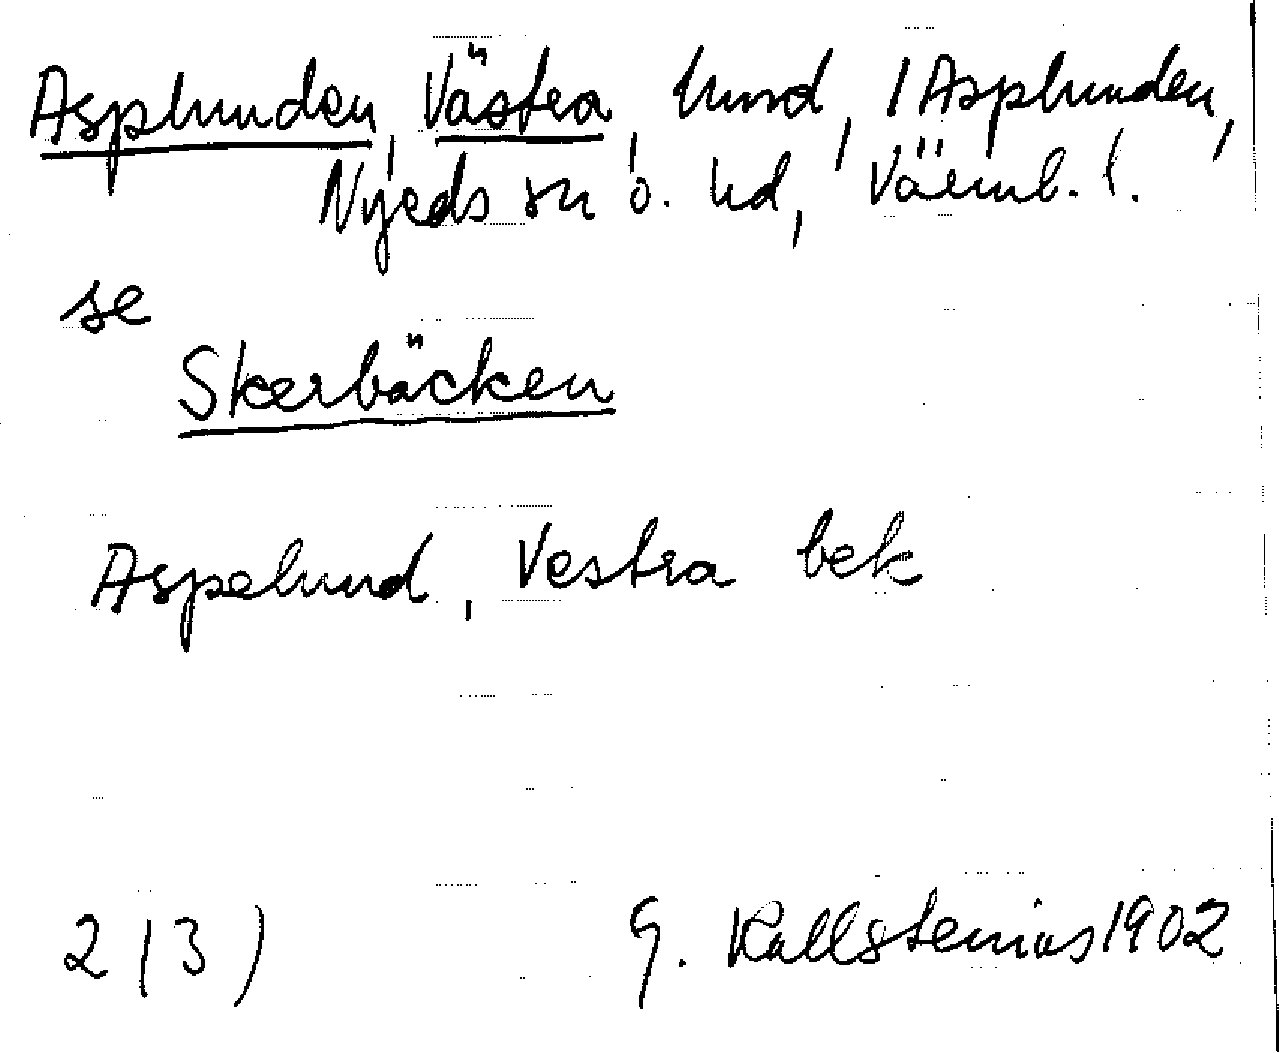 Asplunden, Västra, lund, i Asplunden,
Nyeds sn o. hd, Värml. l.
se
Skerbäcken
Aspelund, Vestra bek
2 (3) G. Kallstenius 1902